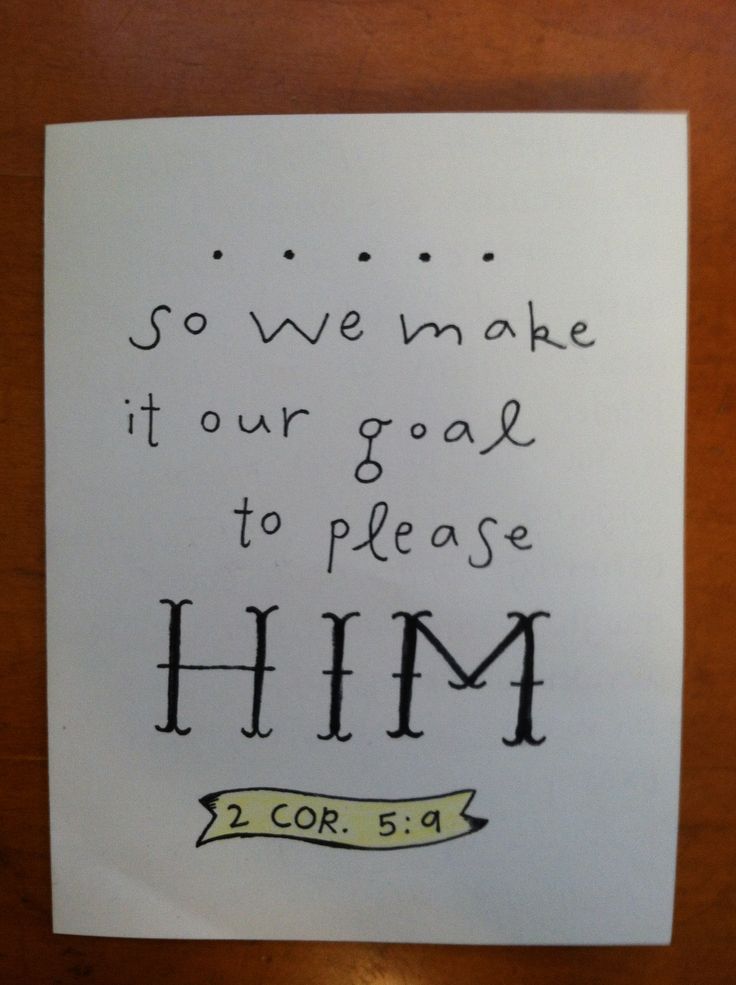 . . . . .
so we make
it our goal
to please
HIM
2 COR. 5:9